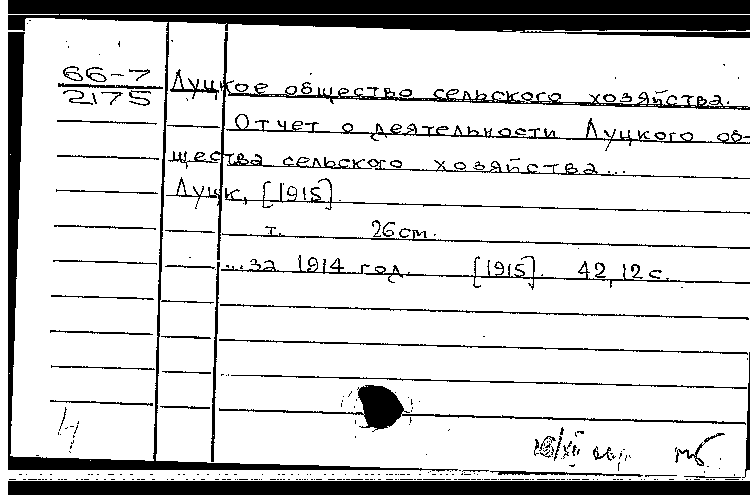 66-7
2175
Луцкое общество сельского хозяйства.
Отчет о деятельности Луцкого об-
щества сельского хозяйства...
Луцк, [1915].
т. 26см.
...за 1914 год. [1915]. 42, 12 с.